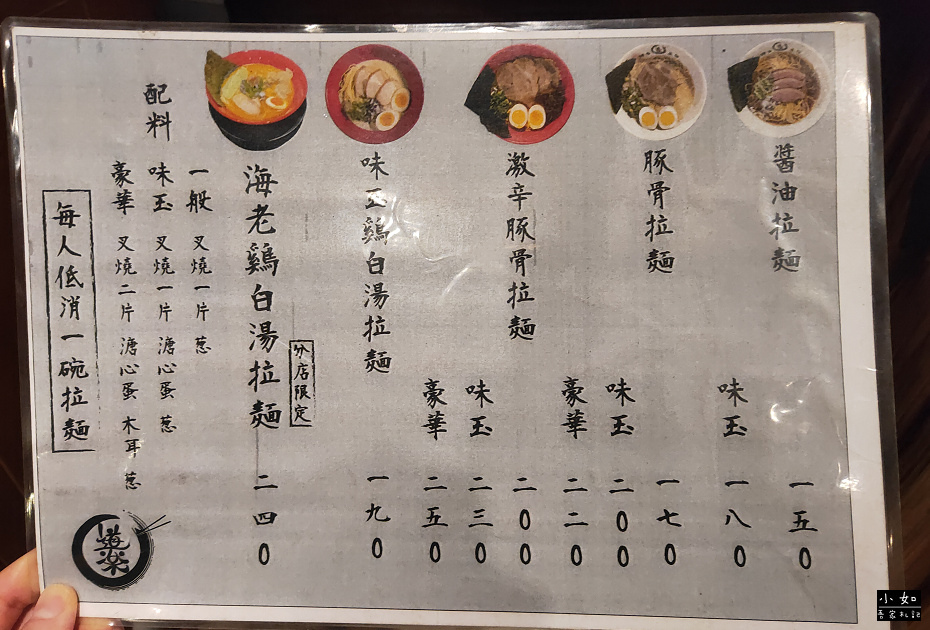 醬油拉麵
一五0
味玉
一八0
豚骨拉麵
一七0
味玉
二00
豪華
二二0
激辛豚骨拉麵
二00
味玉
二三0
豪華
二五0
味玉鶏白湯拉麵
一九0
分店限定
海老鶏白湯拉麵
二四0
配料
一般 叉燒一片 葱
味玉 叉燒一片 溏心蛋 葱
豪華 叉燒二片 溏心蛋 木耳 葱
每人低消一碗拉麵
道樂
小如
吾家札記